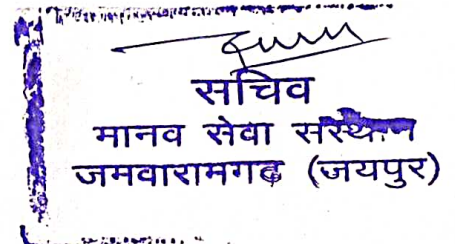 सचिव
मानव सेवा संस्थान
जमवारामगढ (जयपुर)